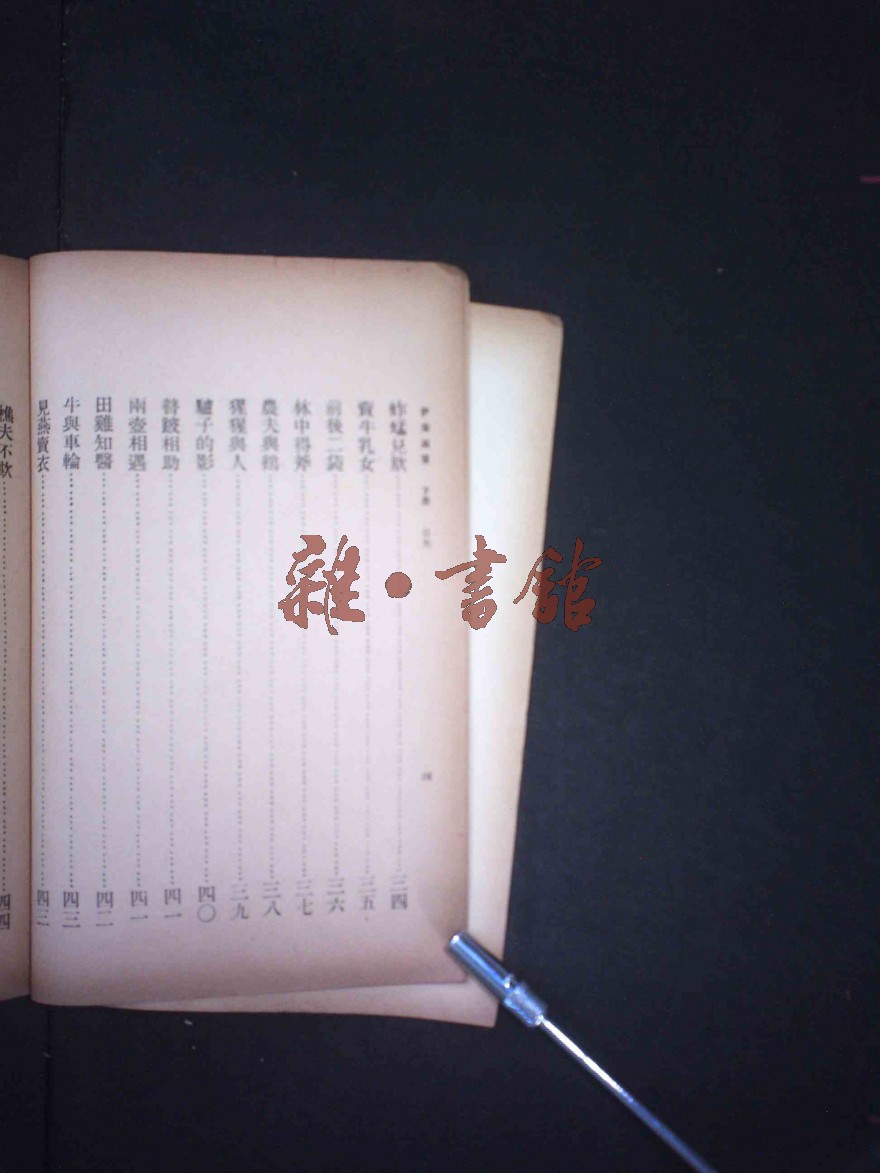 伊索寓言 下册 目次
蚱蜢見欺 三四
賣牛乳女 三五
前後二袋 三六
林中得斧 三七
農夫與鶴 三八
猩猩與人 三九
驢子的影 四〇
瞽跛相助 四一
兩壺相遇 四一
田雞知醫 四二
牛與車輪 四三
見燕賣衣 四三
樵夫不欺 四四
雜·書館